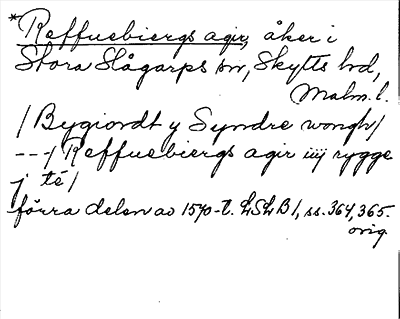 *Reffuebiergs agir, åker i
Stora Slågarps sn, Skytts hd,
Malm. l.
/ Bygiordt y Syndre wongh/
---/ Reffuebiergs agir iiij rygge
j té/
förra delen av 1570-t. LSLB 1, ss. 364, 365.
orig.